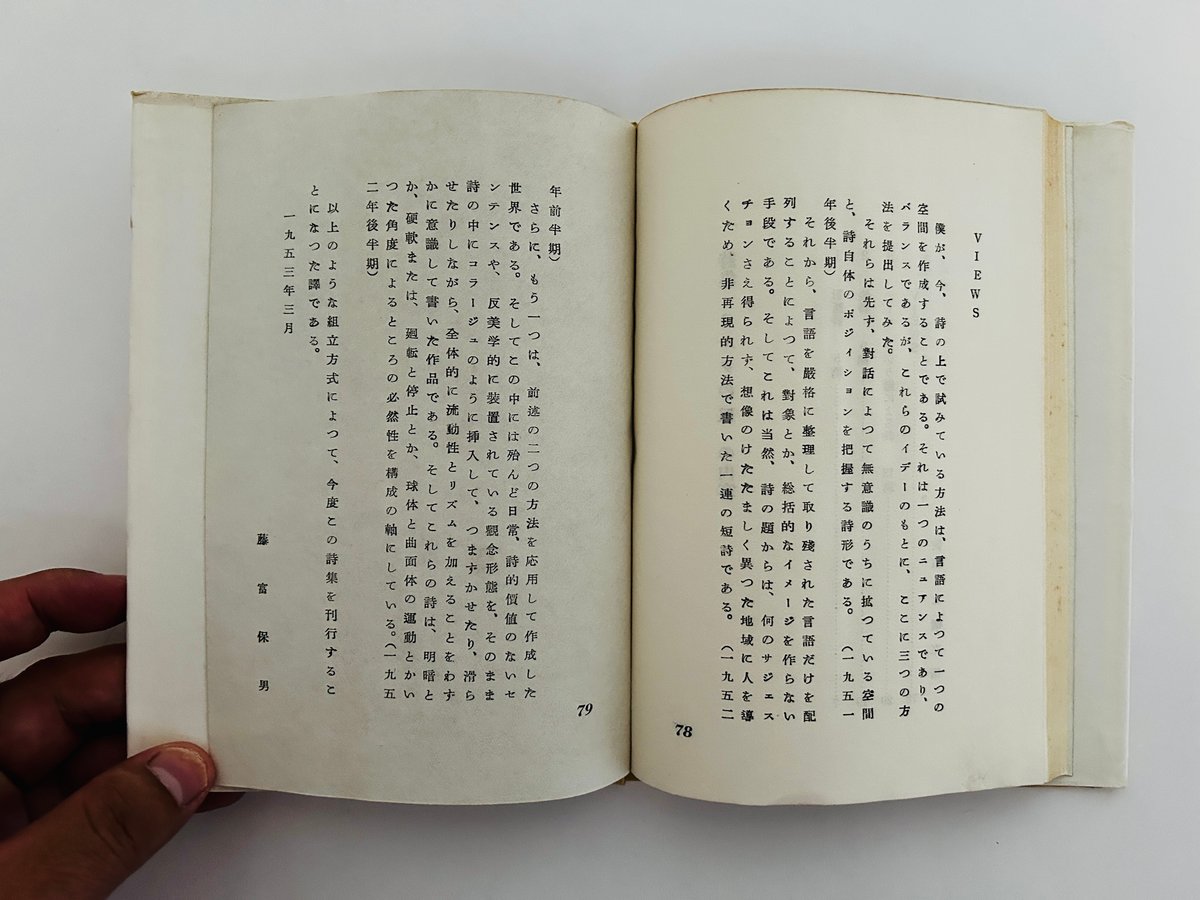 VIEWS
僕が、今、詩の上で試みている方法は、言語によつて一つの
空間を作成することである。それは一つのニュアンスであり、
バランスであるが、これらのイデーのもとに、ここに三つの方
法を提出してみた。
それらは先ず、対話によつて無意識のうちに拡つている空間
と、詩自体のポジィションを把握する詩形である。（一九五一
年後半期）
それから、言語を厳格に整理して取り残された言語だけを配
列することによつて、対象とか、総括的なイメージを作らない
手段である。そしてこれは当然、詩の題からは、何のサジェス
チョンさえ得られず、想像のけたたましく異つた地域に人を導
くため、非再現的方法で書いた一連の短詩である。（一九五二
78
年前半期）
さらに、もう一つは、前述の二つの方法を応用して作成した
世界である。そしてこの中には殆んど日常、詩的價値のないセ
ンテンスや、反美学的に装置されている觀念形態を、そのまま
詩の中にコラージュのように挿入して、つまずかせたり、滑ら
せたりしながら、全体的に流動性とリズムを加えることをわず
かに意識して書いた作品である。そしてこれらの詩は、明暗と
か、硬軟または、廻転と停止とか、球体と曲面体の運動とかい
つた角度によるところの必然性を構成の軸にしている。（一九五
二年後半期）
以上のような組立方式によつて、今度この詩集を刊行するこ
とになつた譯である。
一九五三年三月
藤富保男
79